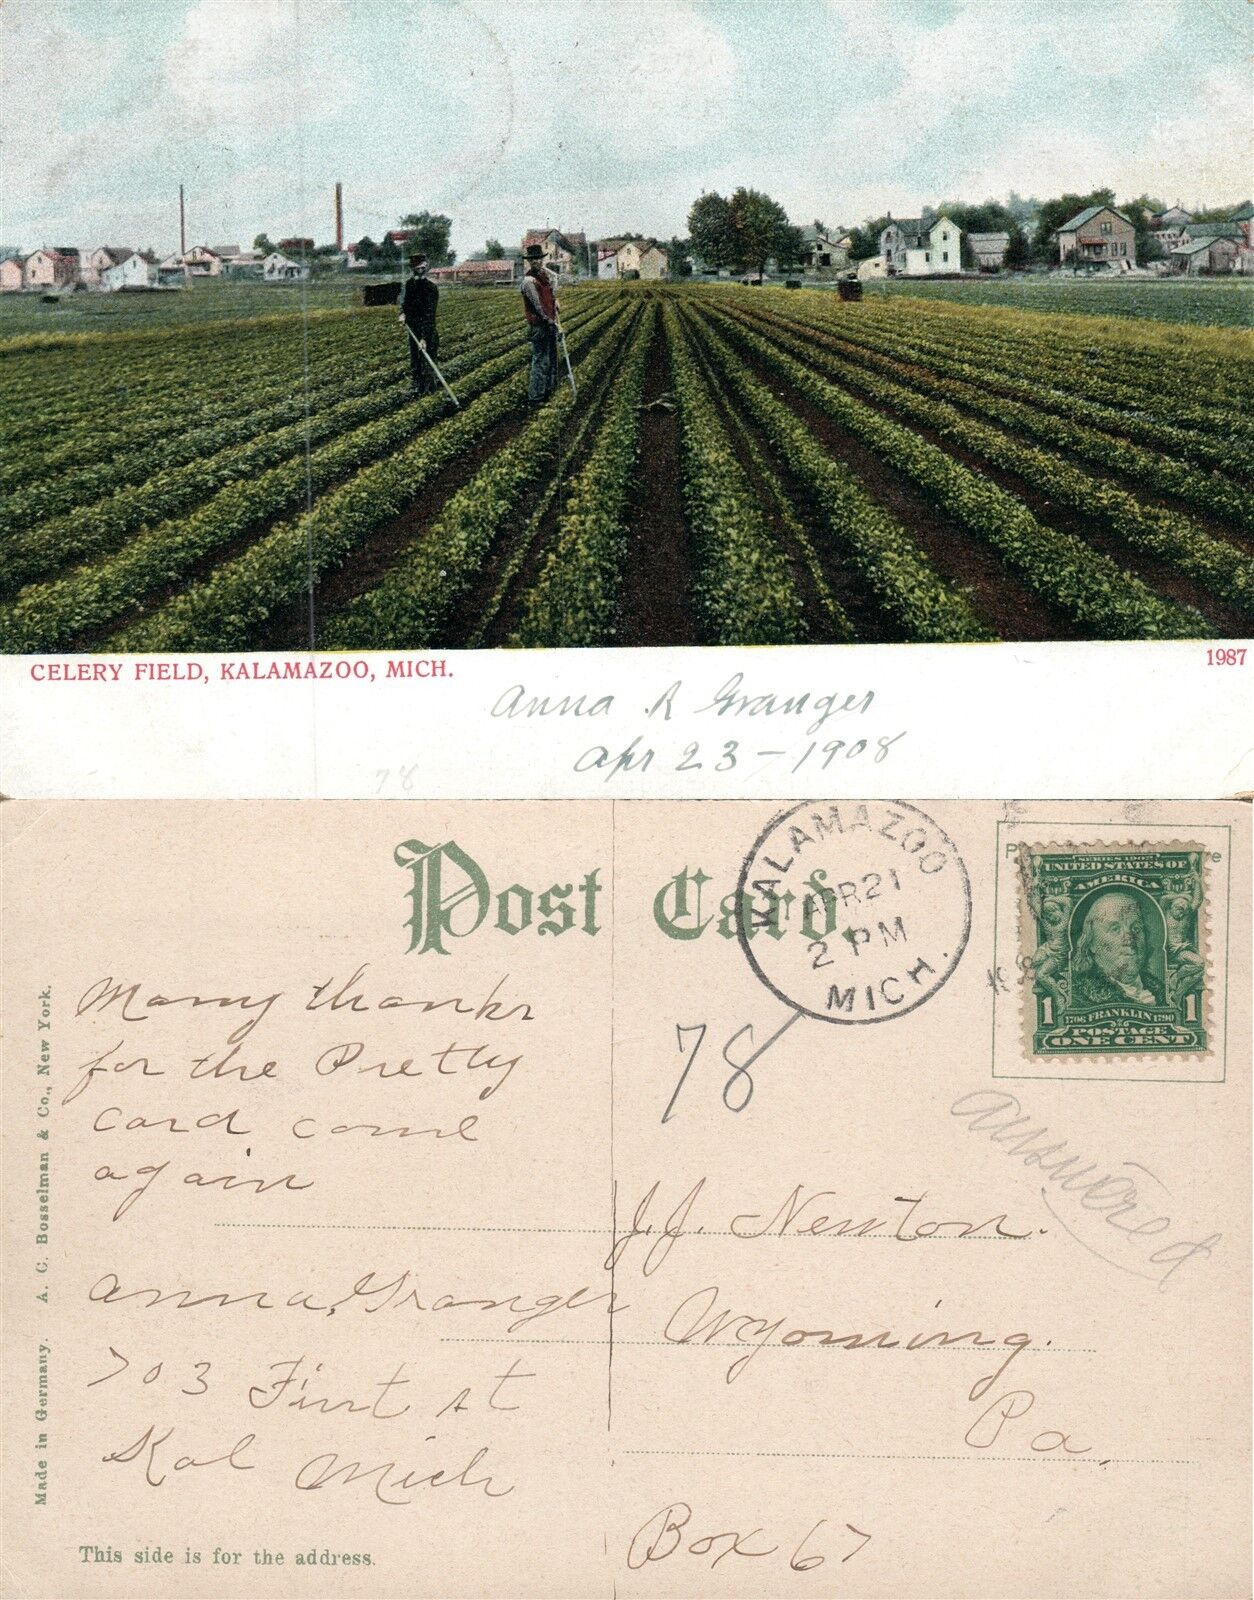 CELERY FIELD, KALAMAZOO, MICH.
1987
Anna R Granger
Apr 23-1908
78
Post Card.
KALAMAZOO
APR 21
2 PM
MICH.
SERIES 1902
UNITED STATES OF
AMERICA
1 1
1706 FRANKLIN 1790
POSTAGE
ONE CENT
78
answered
Many thanks
for the Pretty
card come
again
Anna, Granger
703 First st
Kal Mich
J. J. Newton.
Wyoming.
Pa.
Box 67
Made in Germany. A. C. Bosselman & Co., New York.
This side is for the address.